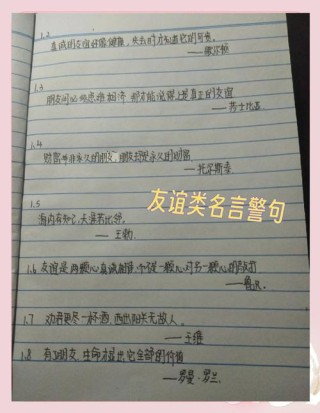 1.2
真诚的友谊好像健康，失去时才知道它的可贵。
1.3
朋友间必须患难相济，那才能说得上真正的友谊
——莎士比亚
1.4
财富并非永久的朋友，朋友却是永久的财富
——托尔斯泰
1.5
海内存知己，天涯若比邻。
——王勃
友谊类名言警句
1.6 友谊是两颗心真诚相待，而不是一颗心对另一颗心的敲打
——鲁迅
1.7 劝君更尽一杯酒，西出阳关无故人。
——王维
1.8 有了朋友，生命才显出它全部的价值
——罗曼·罗兰